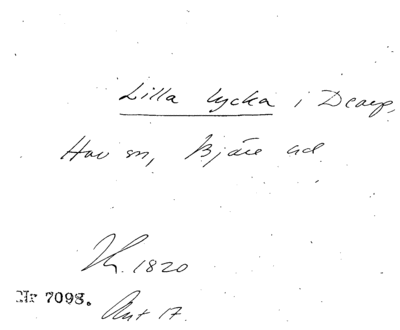 Lilla lycka i Dearp,
Hov sn, Bjäre hd
Th. 1820
Nr 7098.
Ant 17.